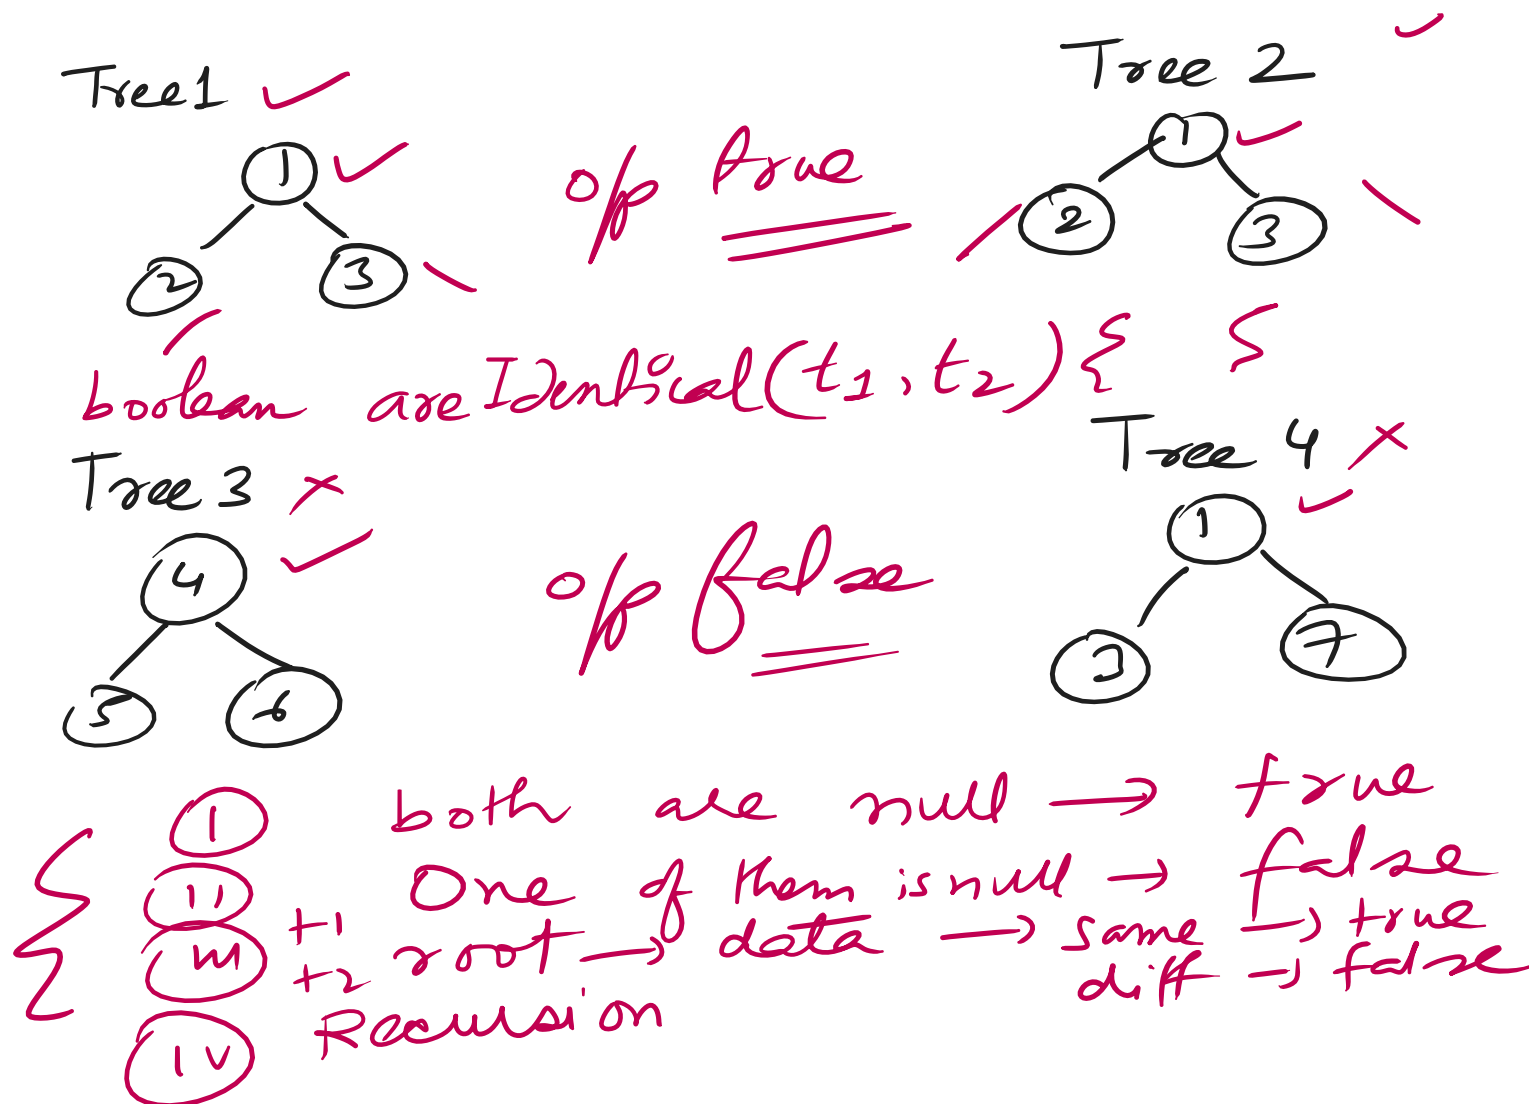 Tree 1
Tree 2
1
1
o/p true
2
3
2
3
boolean areIdentical(t1, t2) { }
Tree 3
Tree 4
4
1
o/p false
5
6
3
7
I both are null → true
II One of them is null → false
III t1 t2 root → data → same → true
diff → false
IV Recursion